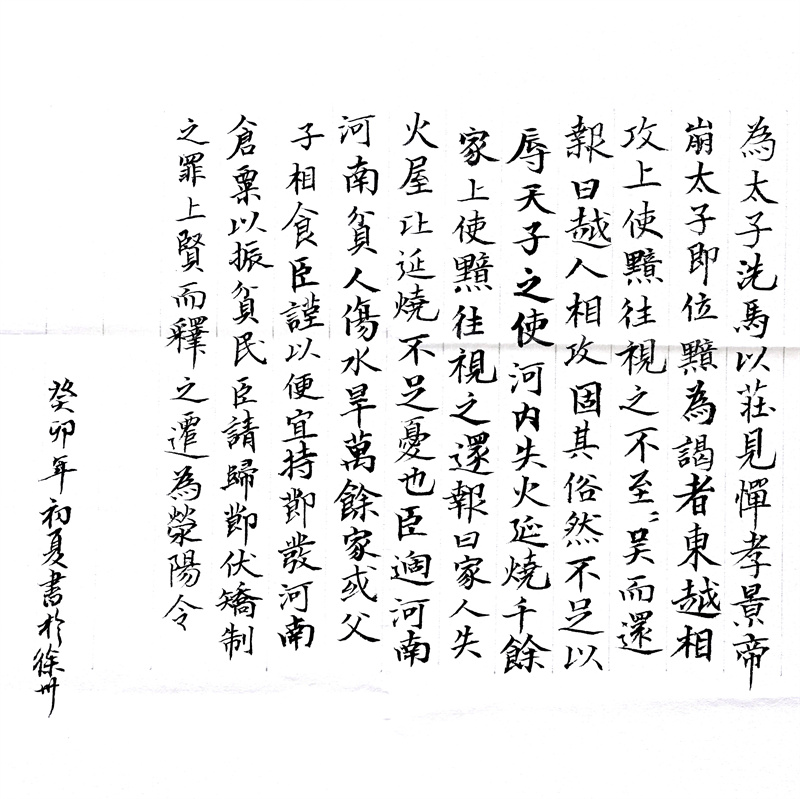 為太子洗馬以莊見憚孝景帝
崩太子即位黯為謁者東越相
攻上使黯往視之不至〻吴而還
報曰越人相攻固其俗然不足以
辱天子之使河内失火延燒千餘
家上使黯往視之還報曰家人失
火屋比延燒不足憂也臣過河南
河南貧人傷水旱萬餘家或父
子相食臣謹以便宜持節發河南
倉粟以振貧民臣請歸節伏矯制
之罪上賢而釋之遷為滎陽令
癸卯年初夏書於徐州